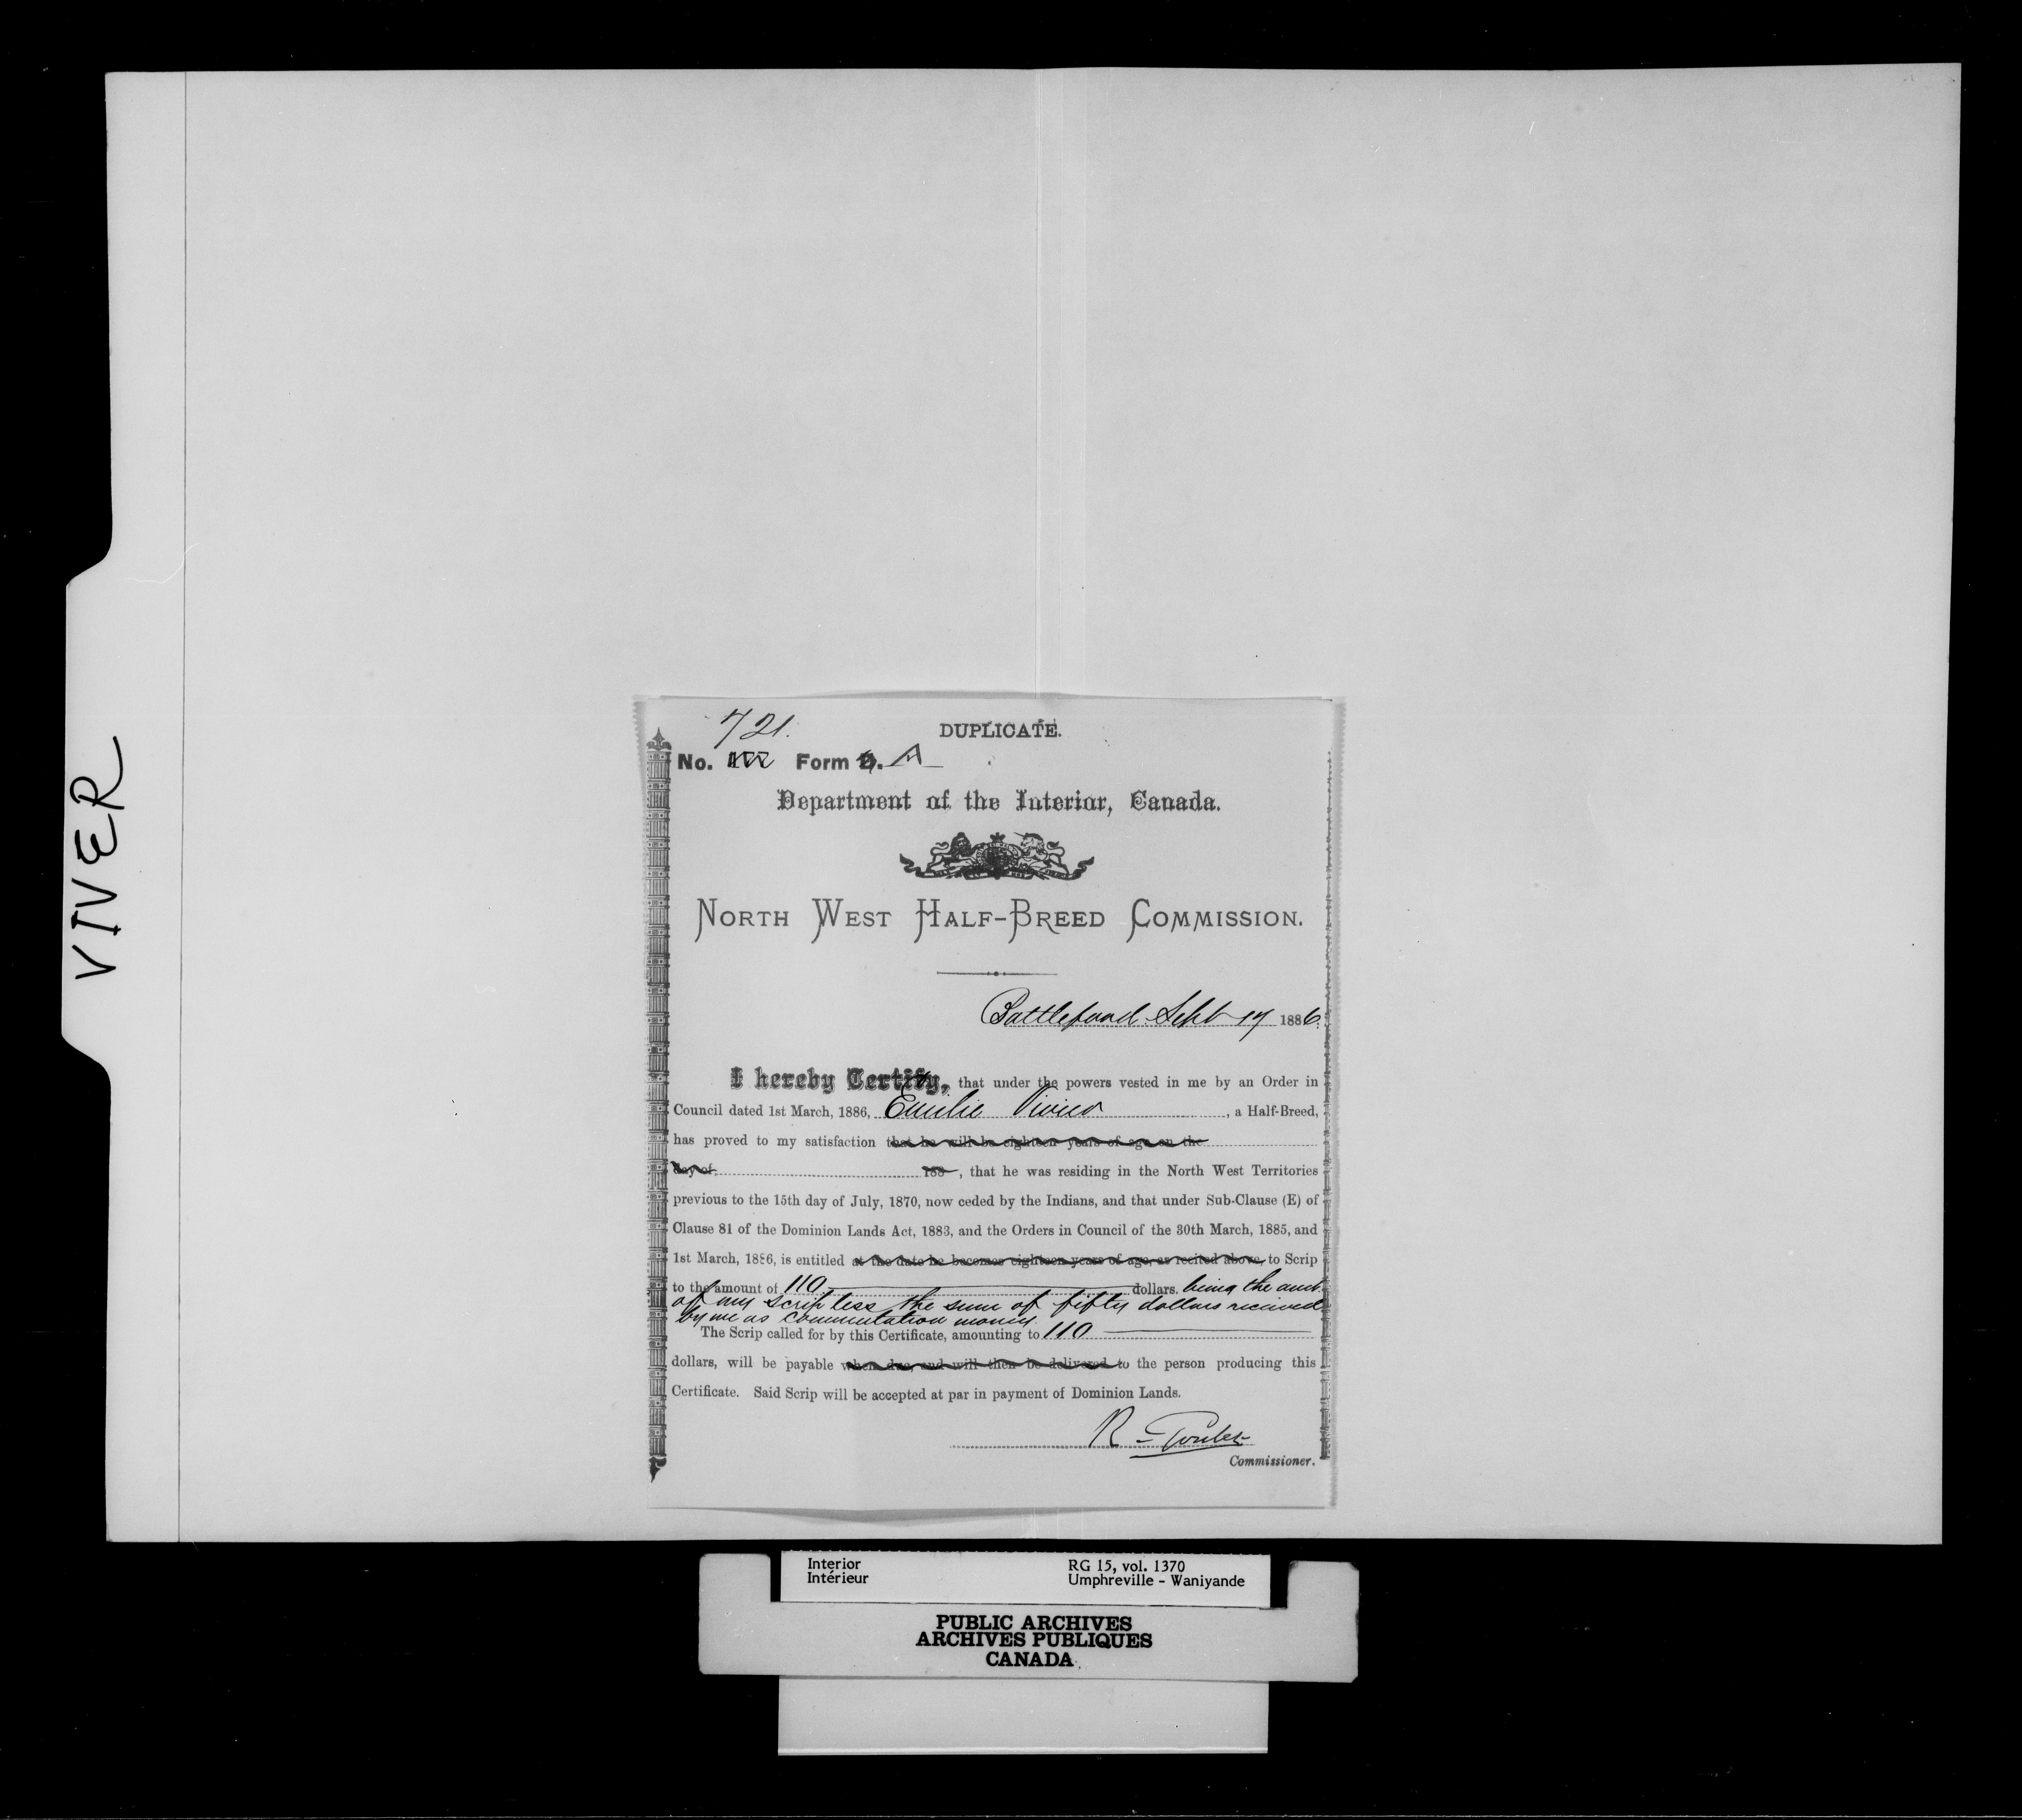 VIVER
721.
DUPLICATE.
No. Form D. A
Department of the Interior, Canada.
NORTH WEST HALF-BREED COMMISSION.
Battleford Sept 17 1886.
I hereby Certify, that under the powers vested in me by an Order in
Council dated 1st March, 1886, Emilie Vivier, a Half-Breed,
has proved to my satisfaction that he will be eighteen years of age on the
day of 188 , that he was residing in the North West Territories
previous to the 15th day of July, 1870, now ceded by the Indians, and that under Sub-Clause (E) of
Clause 81 of the Dominion Lands Act, 1883, and the Orders in Council of the 30th March, 1885, and
1st March, 1886, is entitled at the date he becomes eighteen years of age, as recited above, to Scrip
to the amount of 110 dollars. being the amt.
of my scrip less the sum of fifty dollars received
by me as commutation money.
The Scrip called for by this Certificate, amounting to 110
dollars, will be payable when due, and will then be delivered to the person producing this
Certificate. Said Scrip will be accepted at par in payment of Dominion Lands.
R Goulet
Commissioner.
Interior
Intérieur
RG 15, vol. 1370
Umphreville - Waniyande
PUBLIC ARCHIVES
ARCHIVES PUBLIQUES
CANADA